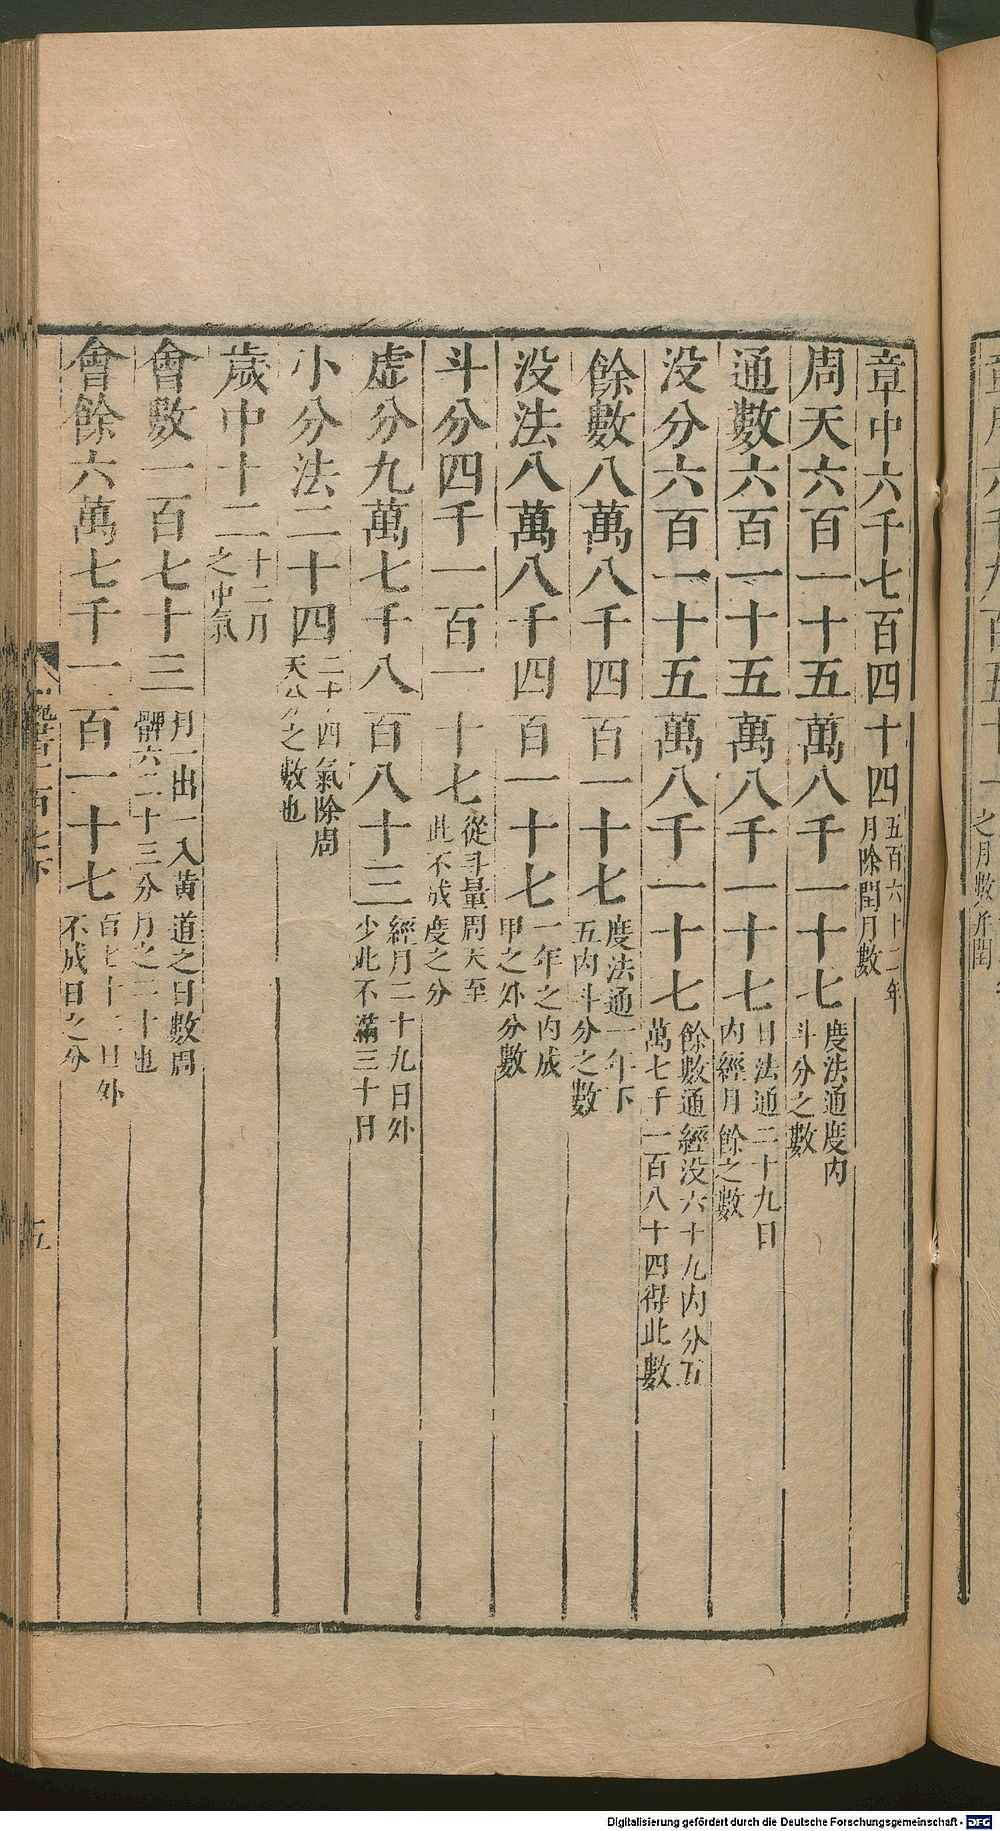 章中六千七百四十四五百六十二年月除閏月數
周天六百一十五萬八千一十七度法通度内斗分之數
通數六百一十五萬八千一十七日法通二十九日内經月餘之數
没分六百一十五萬八千一十七餘數通經没六十九内分五萬七千一百八十四得此數
餘數八萬八千四百一十七度法通一年下五内斗分之數
没法八萬八千四百一十七一年之内成甲之外分數
斗分四千一百一十七從斗量周天至此不成度之分
虚分九萬七千八百八十三經月二十九日外少此不滿三十日
小分法二十四二十四氣除周天分之數也
歲中十二十二月之中氣
會數一百七十三月一出一入黄道之日數周髀六二十三分月之二十也
會餘六萬七千一百一十七百七十三日外不成日之分
五
之月數并閏
Digitalisierung gefördert durch die Deutsche Forschungsgemeinschaft - DFG